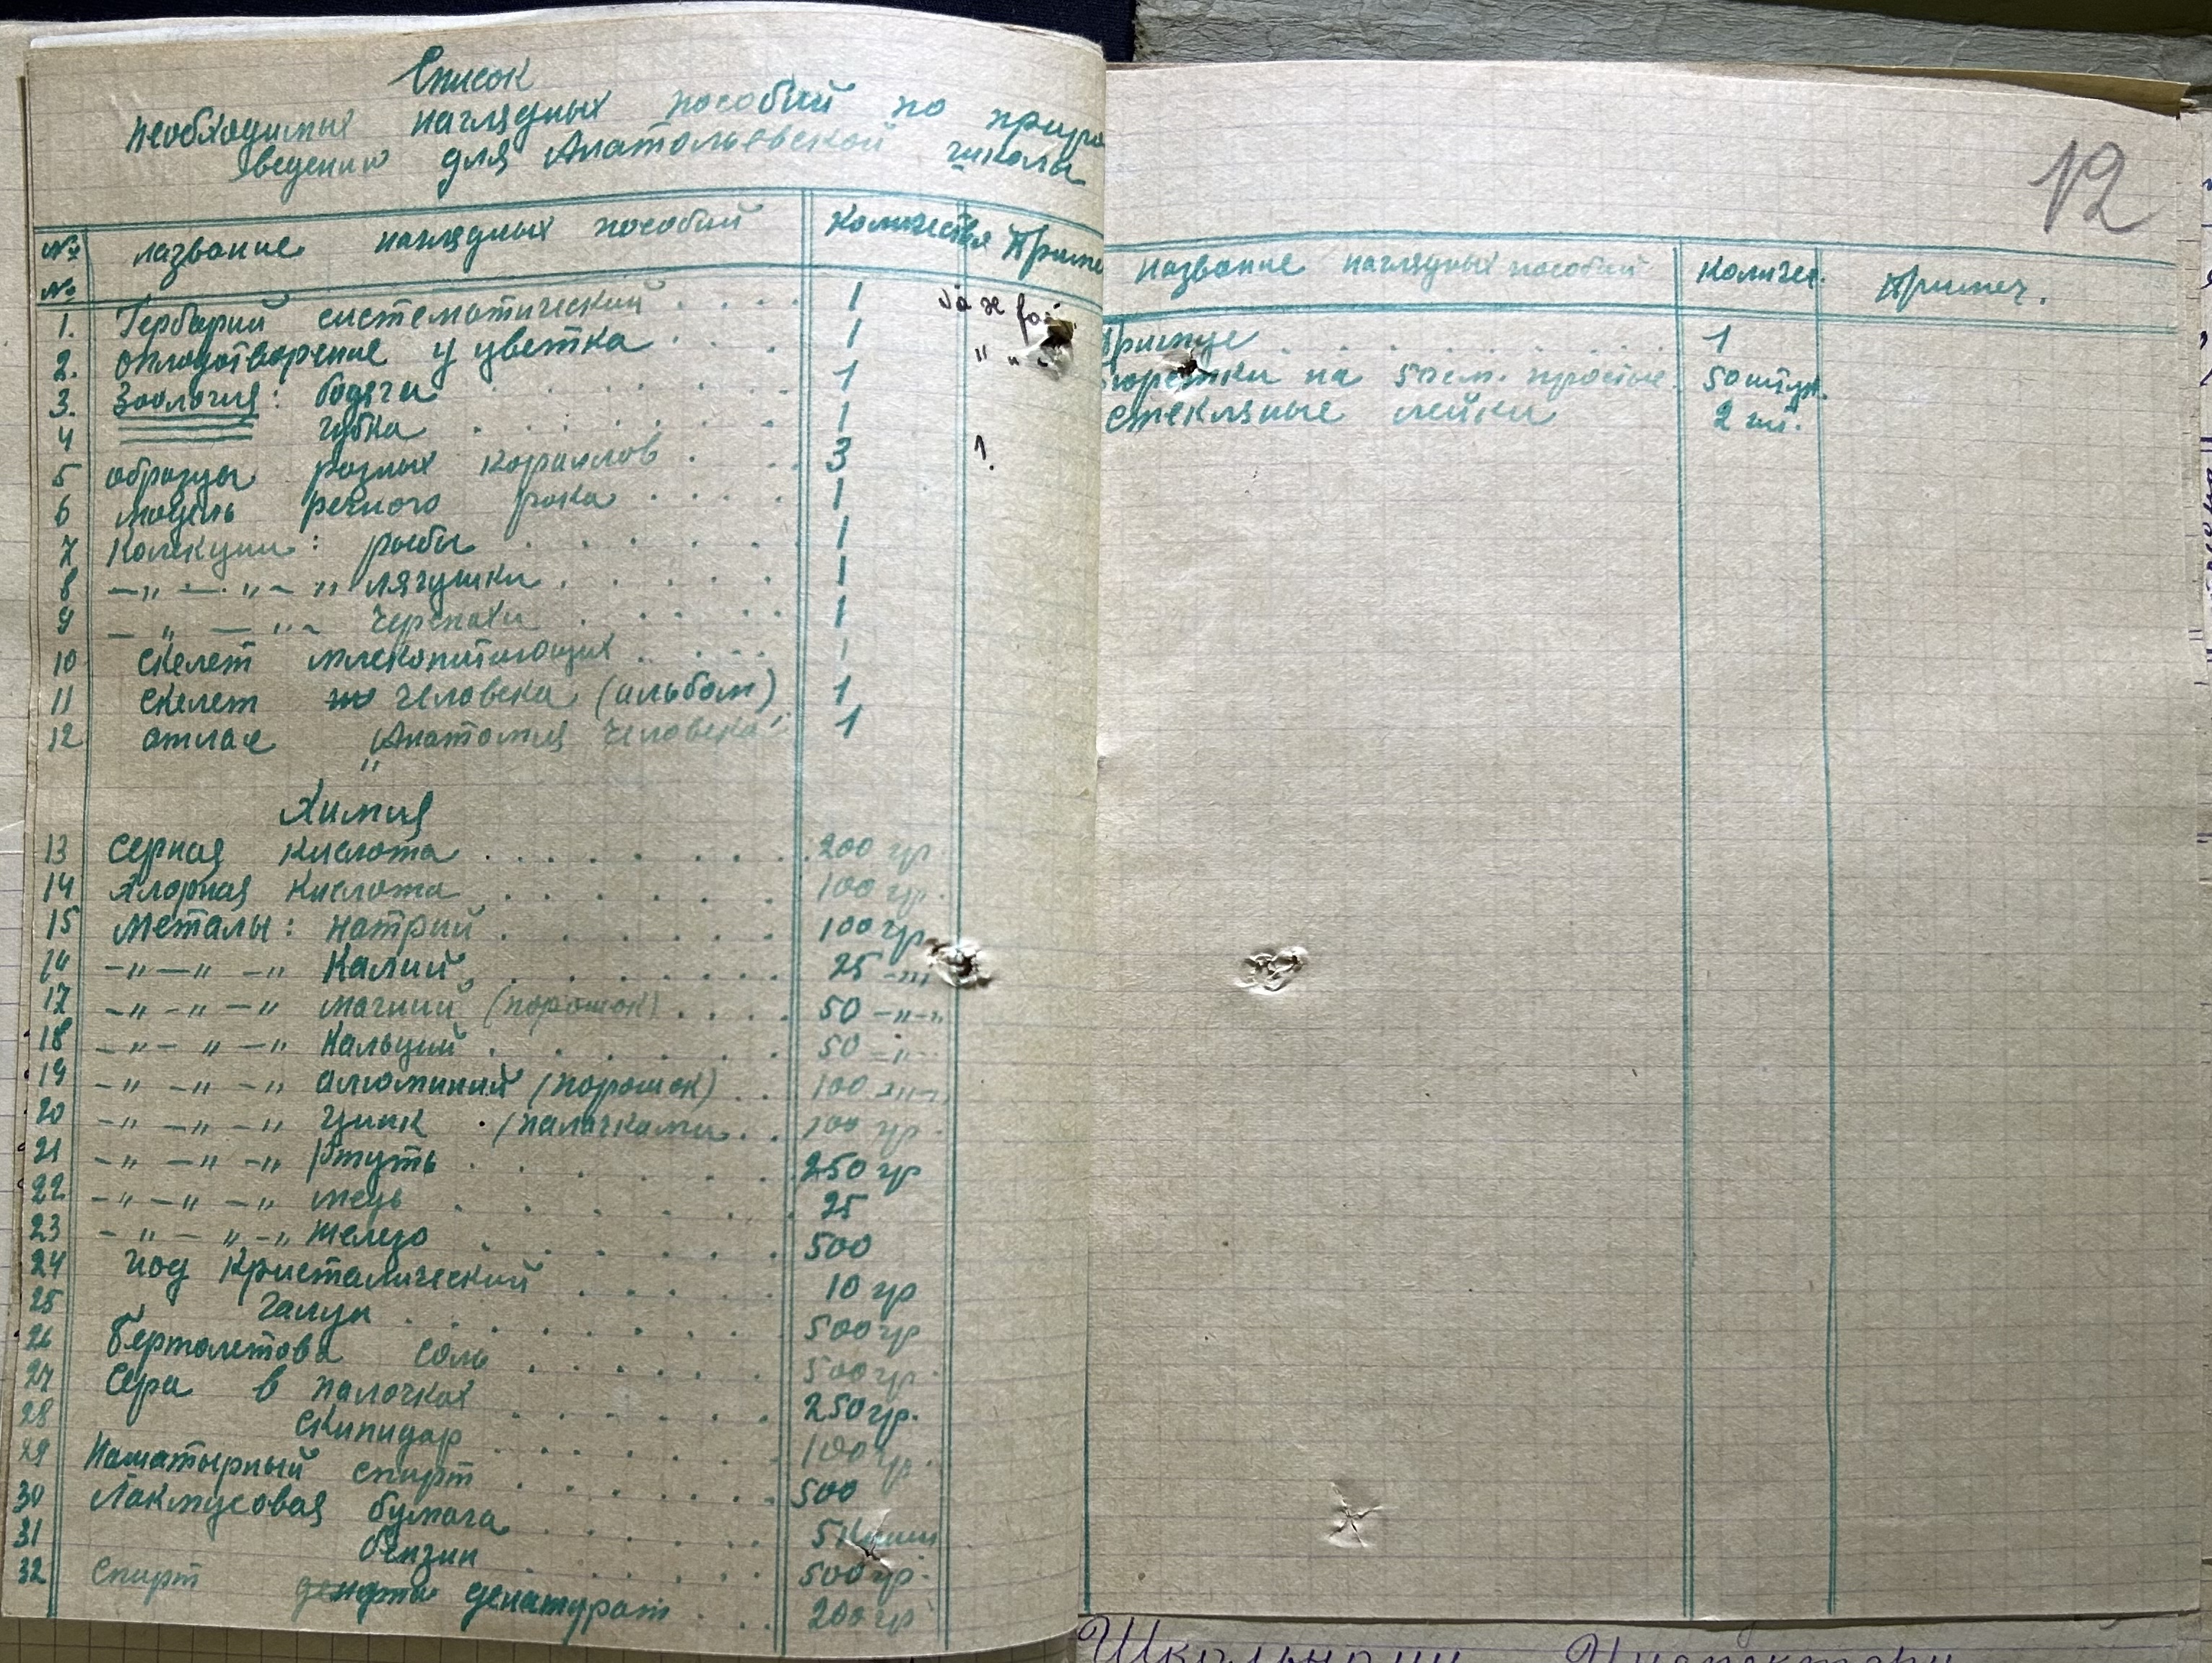 Список
необходимых наглядных пособий по приро
ведению для Анатольевской школы
№№ название наглядных пособий количество Приме
1. Гербарий систематический . . . . 1
2. Оплодотворение у цветка . . . . 1 " " "
3. Зоология: бодяги . . . . 1
4 губка . . . . 1
5 образцы разных кораллов . . . 3 1.
6 модель речного рака . . . . 1
7 Колекции: рыбы . . . . 1
8 —"— · "— " лягушки . . . . 1
9 — " — "— черепахи . . . . 1
10 Скелет млекопитающих . . . . 1
11 Скелет человека (альбом) 1
12 атлас „Анатомия человека" 1
Химия
13 Серная кислота . . . . 200 гр
14 Хлорная кислота . . . . 100 гр.
15 Металы: натрий . . . . 100 гр
16 —"—"—" Калий . . . . 25 —"—
17 —"—"—" магний (порошок) . . . . 50 —"—"
18 —"—"—" Кальций . . . . 50 —"—
19 —"—"—" алюминий (порошок) . . 100 —"—
20 —"—"—" цинк (палочками . . 100 гр.
21 —"—"—" Ртуть . . . . 250 гр
22 —"—"—" медь . . . . 25
23 —"—"—" железо . . . . 500
24 Иод Кристалический . . . . 10 гр
25 Галун . . . . 500 гр
26 Бертолетова соль . . . . 500 гр.
27 Сера в палочках . . . . 250 гр.
28 Скипидар . . . . 100 гр.
29 Нашатырный спирт . . . . 500
30 Лакмусовая бумага . . . . 5
31 бензин . . . . 500 гр.
32 Спирт денатурат . . . 200 гр
12
название наглядных пособий Количес. Примеч.
1
на 50 см. простые. 50 штук.
стекляные лейки 2 шт.
Школьному Инспектору